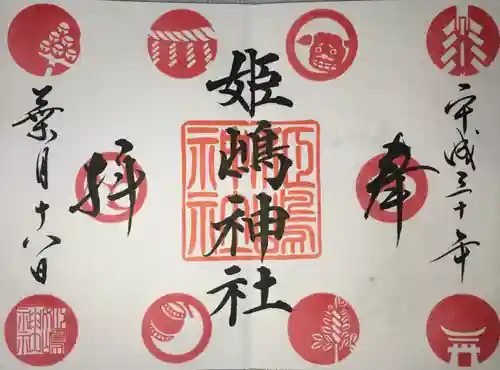 平成三十年
奉
姫嶋神社
拝
葉月十八日
姫嶋神社
姫嶋神社